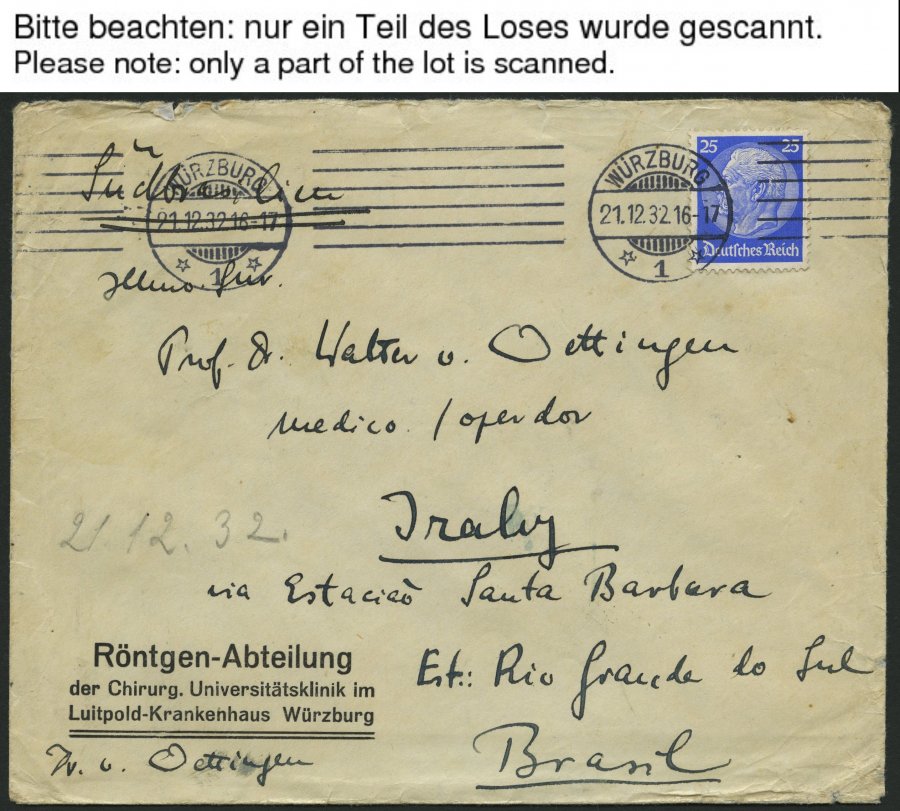 Bitte beachten: nur ein Teil des Loses wurde gescannt.
Please note: only a part of the lot is scanned.
Südbrasilien
WÜRZBURG
21.12.32.16-17
1
WÜRZBURG
21.12.32.16-17
1
25 25
Deutsches Reich
Illmo. Snr.
Prof. Dr. Walter v. Oettingen
medico /operdor
Irahy
21.12.32.
via Estaciaõ Santa Barbara
Röntgen-Abteilung
der Chirurg. Universitätsklinik im
Luitpold-Krankenhaus Würzburg
Est.: Rio Grande do Sul
v. Oettingen
Brasil